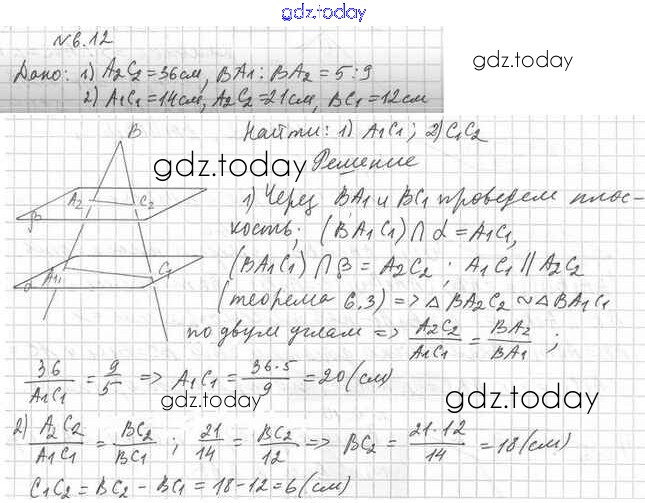 gdz.today
№6.12
Дано: 1) A₂C₂=36см, BA₁:BA₂=5:9
2) A₁C₁=14см, A₂C₂=21см, BC₁=12см
gdz.today
Найти: 1) A₁C₁; 2) C₁C₂
Решение
B
gdz.today
A₂
C₂
β
A₁
C₁
α
1) Через BA₁ и BC₁ проведем плос-
кость; (BA₁C₁)∩α=A₁C₁,
(BA₁C₁)∩β=A₂C₂; A₁C₁∥A₂C₂
(теорема 6.3) => △BA₂C₂~△BA₁C₁
по двум углам => A₂C₂/A₁C₁ = BA₂/BA₁;
36/A₁C₁ = 9/5 => A₁C₁ = 36·5/9 = 20(см)
gdz.today
gdz.today
2) A₂C₂/A₁C₁ = BC₂/BC₁; 21/14 = BC₂/12 => BC₂ = 21·12/14 = 18(см)
C₁C₂ = BC₂ - BC₁ = 18-12=6(см)